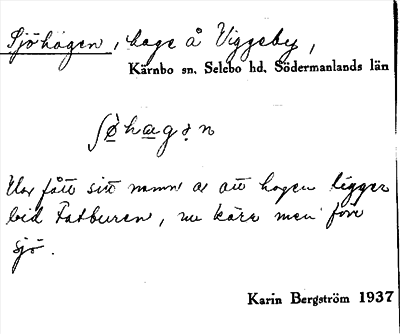 Sjöhagen, hage å Viggeby,
Kärnbo sn. Selebo hd. Södermanlands län
ʃø̀hɑgən
Har fått sitt namn av att hagen ligger
vid Fatburen, nu kärr men förr
sjö.
Karin Bergström 1937